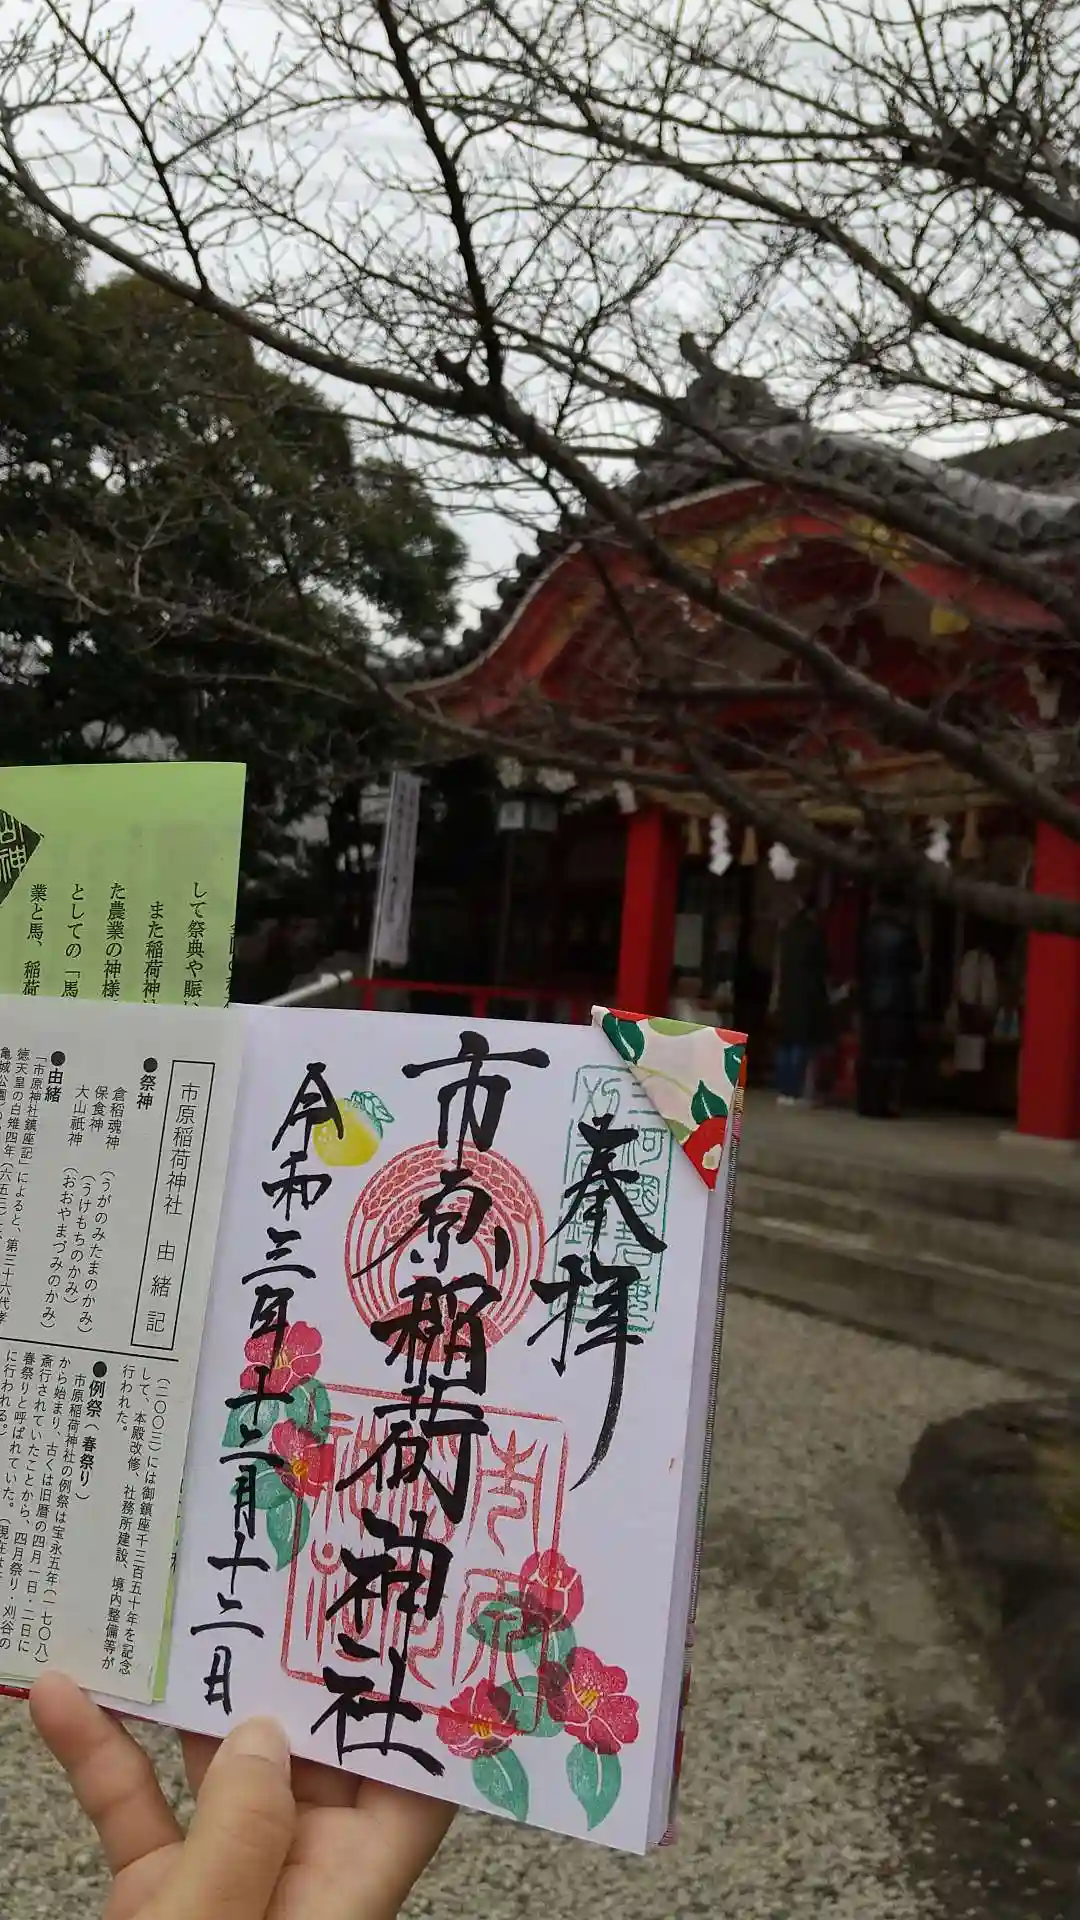 奉拝
市原稲荷神社
令和三年十二月十二日
三河國碧海
市原稲荷神社 由緒記
●祭神
倉稲魂神 (うがのみたまのかみ)
保食神 (うけもちのかみ)
大山祇神 (おおやまづみのかみ)
●由緒
「市原神社鎮座記」によると、第三十六代孝
徳天皇の白雉四年(六五三)に、
亀城公園
(二〇〇三)には御鎮座千三百五十年を記念
して、本殿改修、社務所建設、境内整備等が
行われた。
●例祭(春祭り)
市原稲荷神社の例祭は宝永五年(一七〇八)
から始まり、古くは旧暦の四月一日・二日に
斎行されていたことから、四月祭り・刈谷の
春祭りと呼ばれていた。(現在は
に行われる。)
して祭典や賑い
また稲荷神社
た農業の神様
としての「馬
業と馬、稲荷